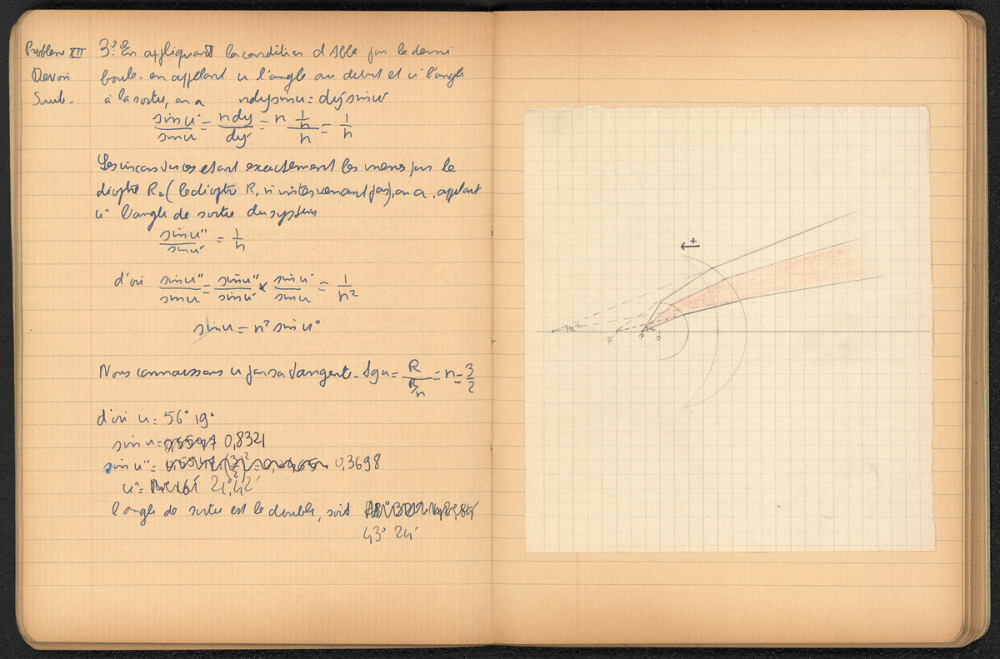 Problème XII
Devoir
Suite.
3° En appliquant la condition d'Abbe sur la demi
boule. en appelant u l'angle au debut et u' l'angle
à la sortie, on a ndysinu = dy'sinu'
sinu'/sinu = ndy/dy' = n (1/n)/n = 1/n
Les étant exactement les memes sur le
dioptre R₂ ( le dioptre R, pas), on a, appelant
u" l'angle de sortie du système
sinu"/sinu' = 1/n
d'où sinu"/sinu = sinu"/sinu' × sinu'/sinu = 1/n²
sinu = n² sinu"
Nous connaissons u par sa tangente. tgu = R/(R/n) = n = 3/2
d'où u = 56° 19'
sinu = 0,8321
sinu" = 0,3698
u" = 21°,42'
l'angle de sortie est le double, soit
43° 24'
+